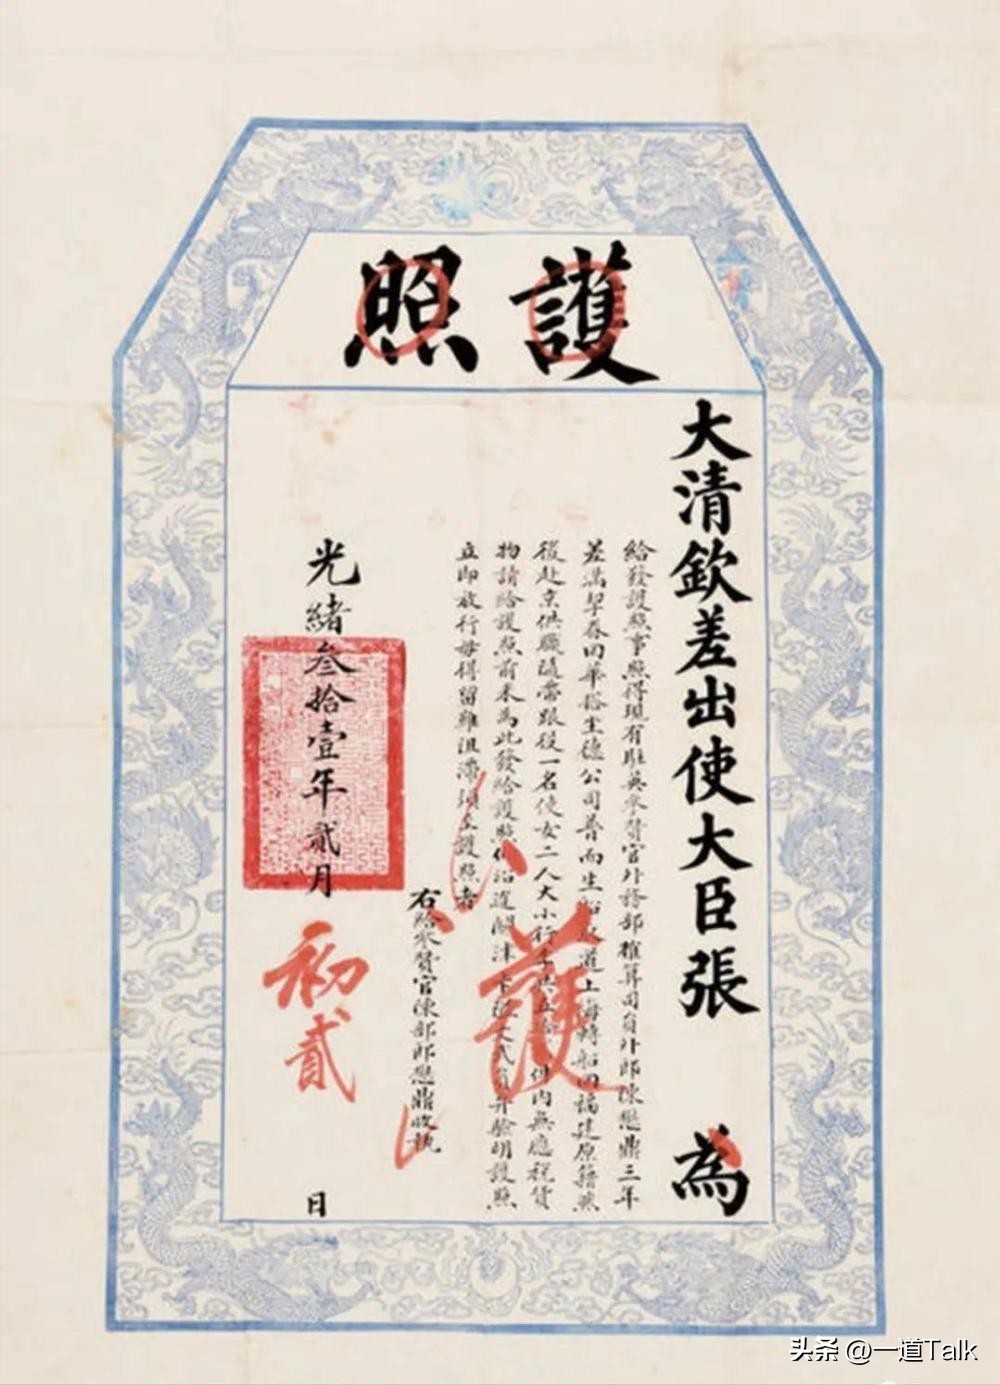 護照
大清欽差出使大臣張 為
給發護照事照得現有駐英參贊官外務部榷算司員外郎陳懋鼎三年
差滿挈眷回華搭坐德公司普而生船取道上海轉船回福建原籍然
後赴京供職隨帶跟役一名使女二人大小行李共五 件內無應稅貨
物請給護照前來為此發給護照仰沿途關津 文武員弁驗明護照
立即放行毋得留難阻滯須至護照者
右給參贊官陳部郎懋鼎收執
光緒叁拾壹年貳月初貳日
護
头条 @一道Talk